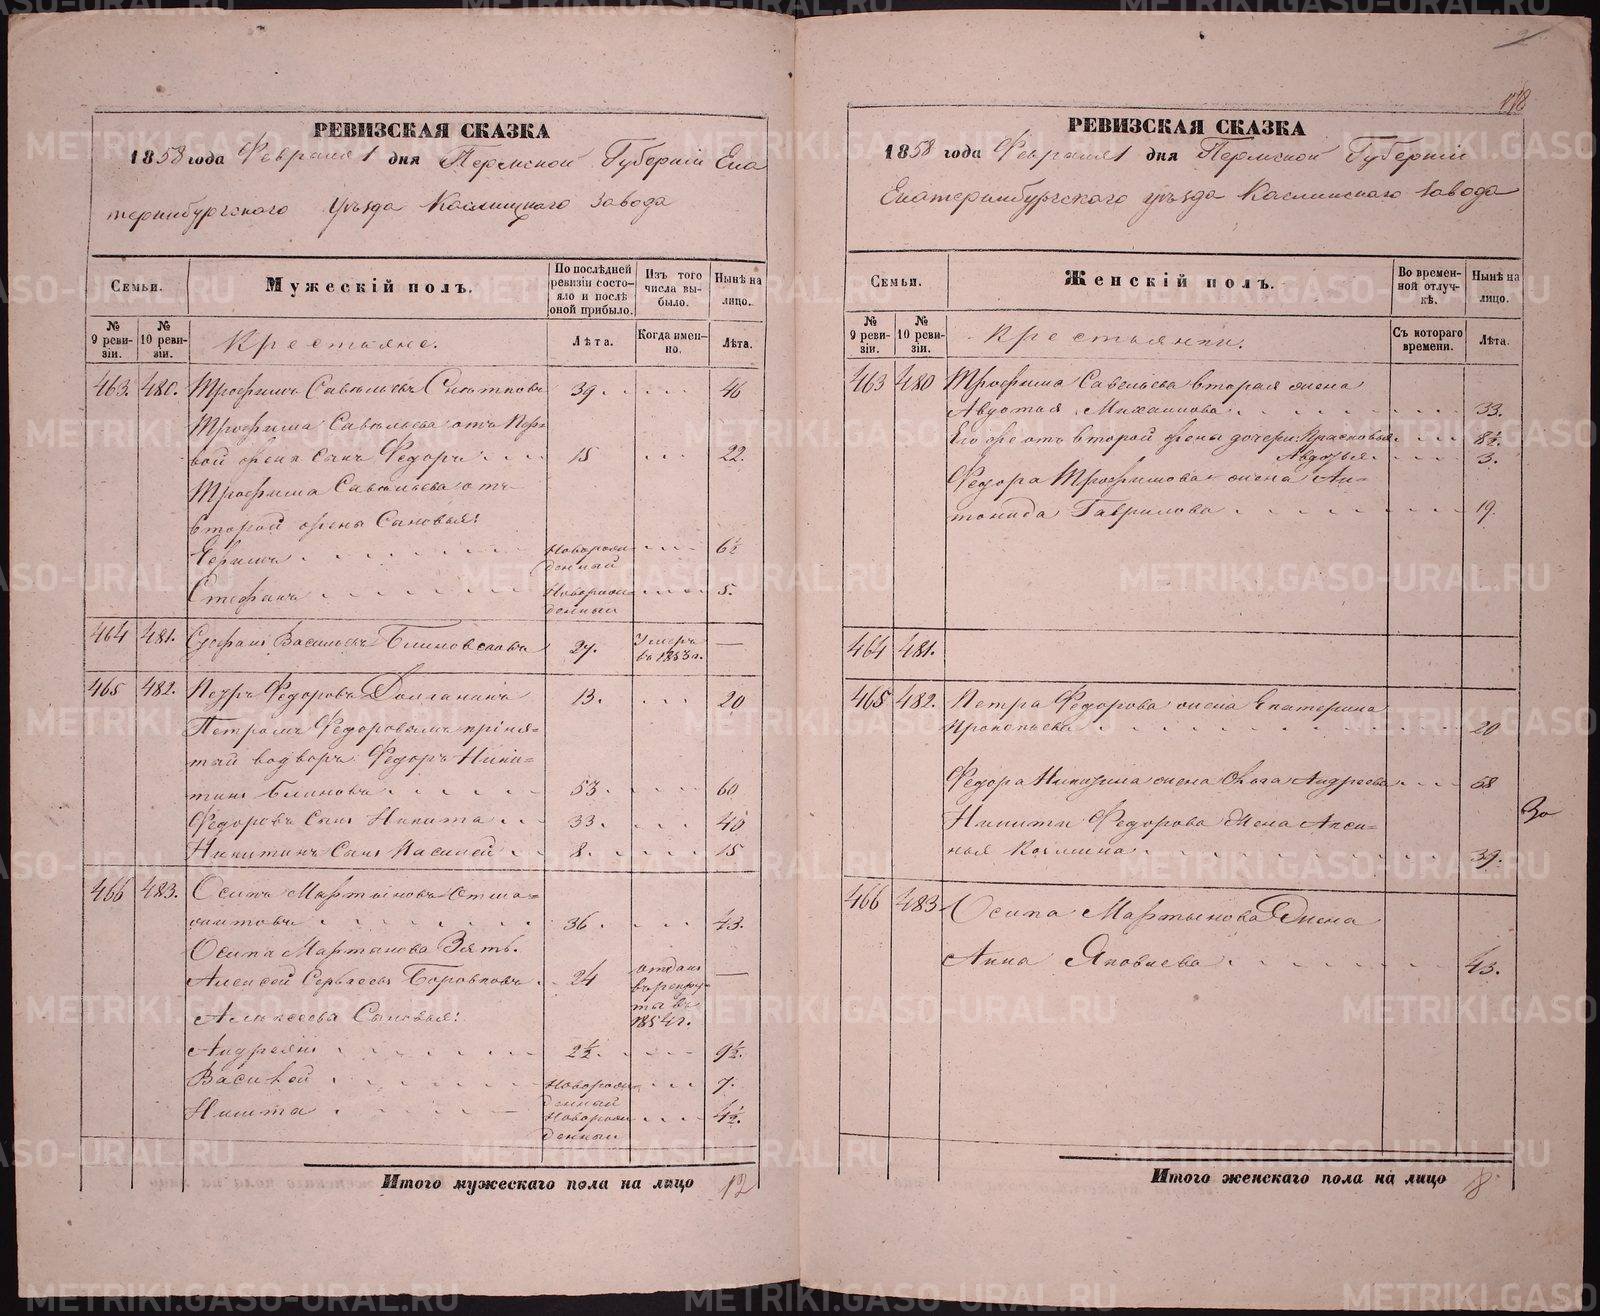 РЕВИЗСКАЯ СКАЗКА
1858 года Февраля 1 дня Пермской Губерніи Ека
теринбургскаго Уѣзда Каслинскаго Завода
Семьи.
Мужескій полъ.
По послѣдней ревизіи состояло и послѣ оной прибыло.
Изъ того числа выбыло.
Нынѣ на лицо.
№ 9 ревизіи.
№ 10 ревизіи.
Крестьяне.
Лѣта.
Когда именно.
Лѣта.
463. 480. Трофимъ Савельевъ 39. 46
Трофима Савельева отъ пер-
вой жены сынъ Федоръ 15 22.
Трофима Савельева отъ
второй жены Сыновья:
Ефимъ Новорожденный 6½
Стефанъ Новорожденный 5.
464 481. Васильевъ 27. Умеръ въ 1853 г. —
465 482. Петръ Федоровъ 13. 20
Петромъ Федоровымъ приня-
тый во дворъ Федоръ Ники-
тинъ Блиновъ 53. 60
Федоровъ Сынъ Никита 33. 40
Никитинъ Сынъ Василей 8. 15
466 483. Осипъ Мартыновъ
36. 43.
Осипа Мартынова Зять.
Алексей Сергеевъ Боровковъ 24 отданъ въ рекруты въ 1854 г. —
Алексеева Сыновья:
Андреянъ 2½. 9½.
Василей Новорожденный 7.
Никита Новорожденный 4½.
Итого мужескаго пола на лицо 12
118
РЕВИЗСКАЯ СКАЗКА
1858 года Февраля 1 дня Пермской Губерніи
Екатеринбургскаго уѣзда Каслинскаго Завода
Семьи.
Женскій полъ.
Во временной отлучкѣ.
Нынѣ на лицо.
№ 9 ревизіи.
№ 10 ревизіи.
Крестьянки.
Съ котораго времени.
Лѣта.
463 480 Трофима Савельева вторая жена
Авдотья Михайлова 33.
Его же отъ второй жены дочери: Прасковья 8½.
Авдотья 3.
Федора Трофимова жена Ан-
тонида Гаврилова 19.
464 481.
465 482. Петра Федорова жена Екатерина
Прокопьева 20
Федора Никитина жена Ольга Андреева 58
Никиты Федорова Жена Акси-
нья Козмина 39.
466 483 Осипа Мартынова Жена
Анна Яковлева 43.
Итого женскаго пола на лицо 8
METRIKI.GASO-URAL.RU